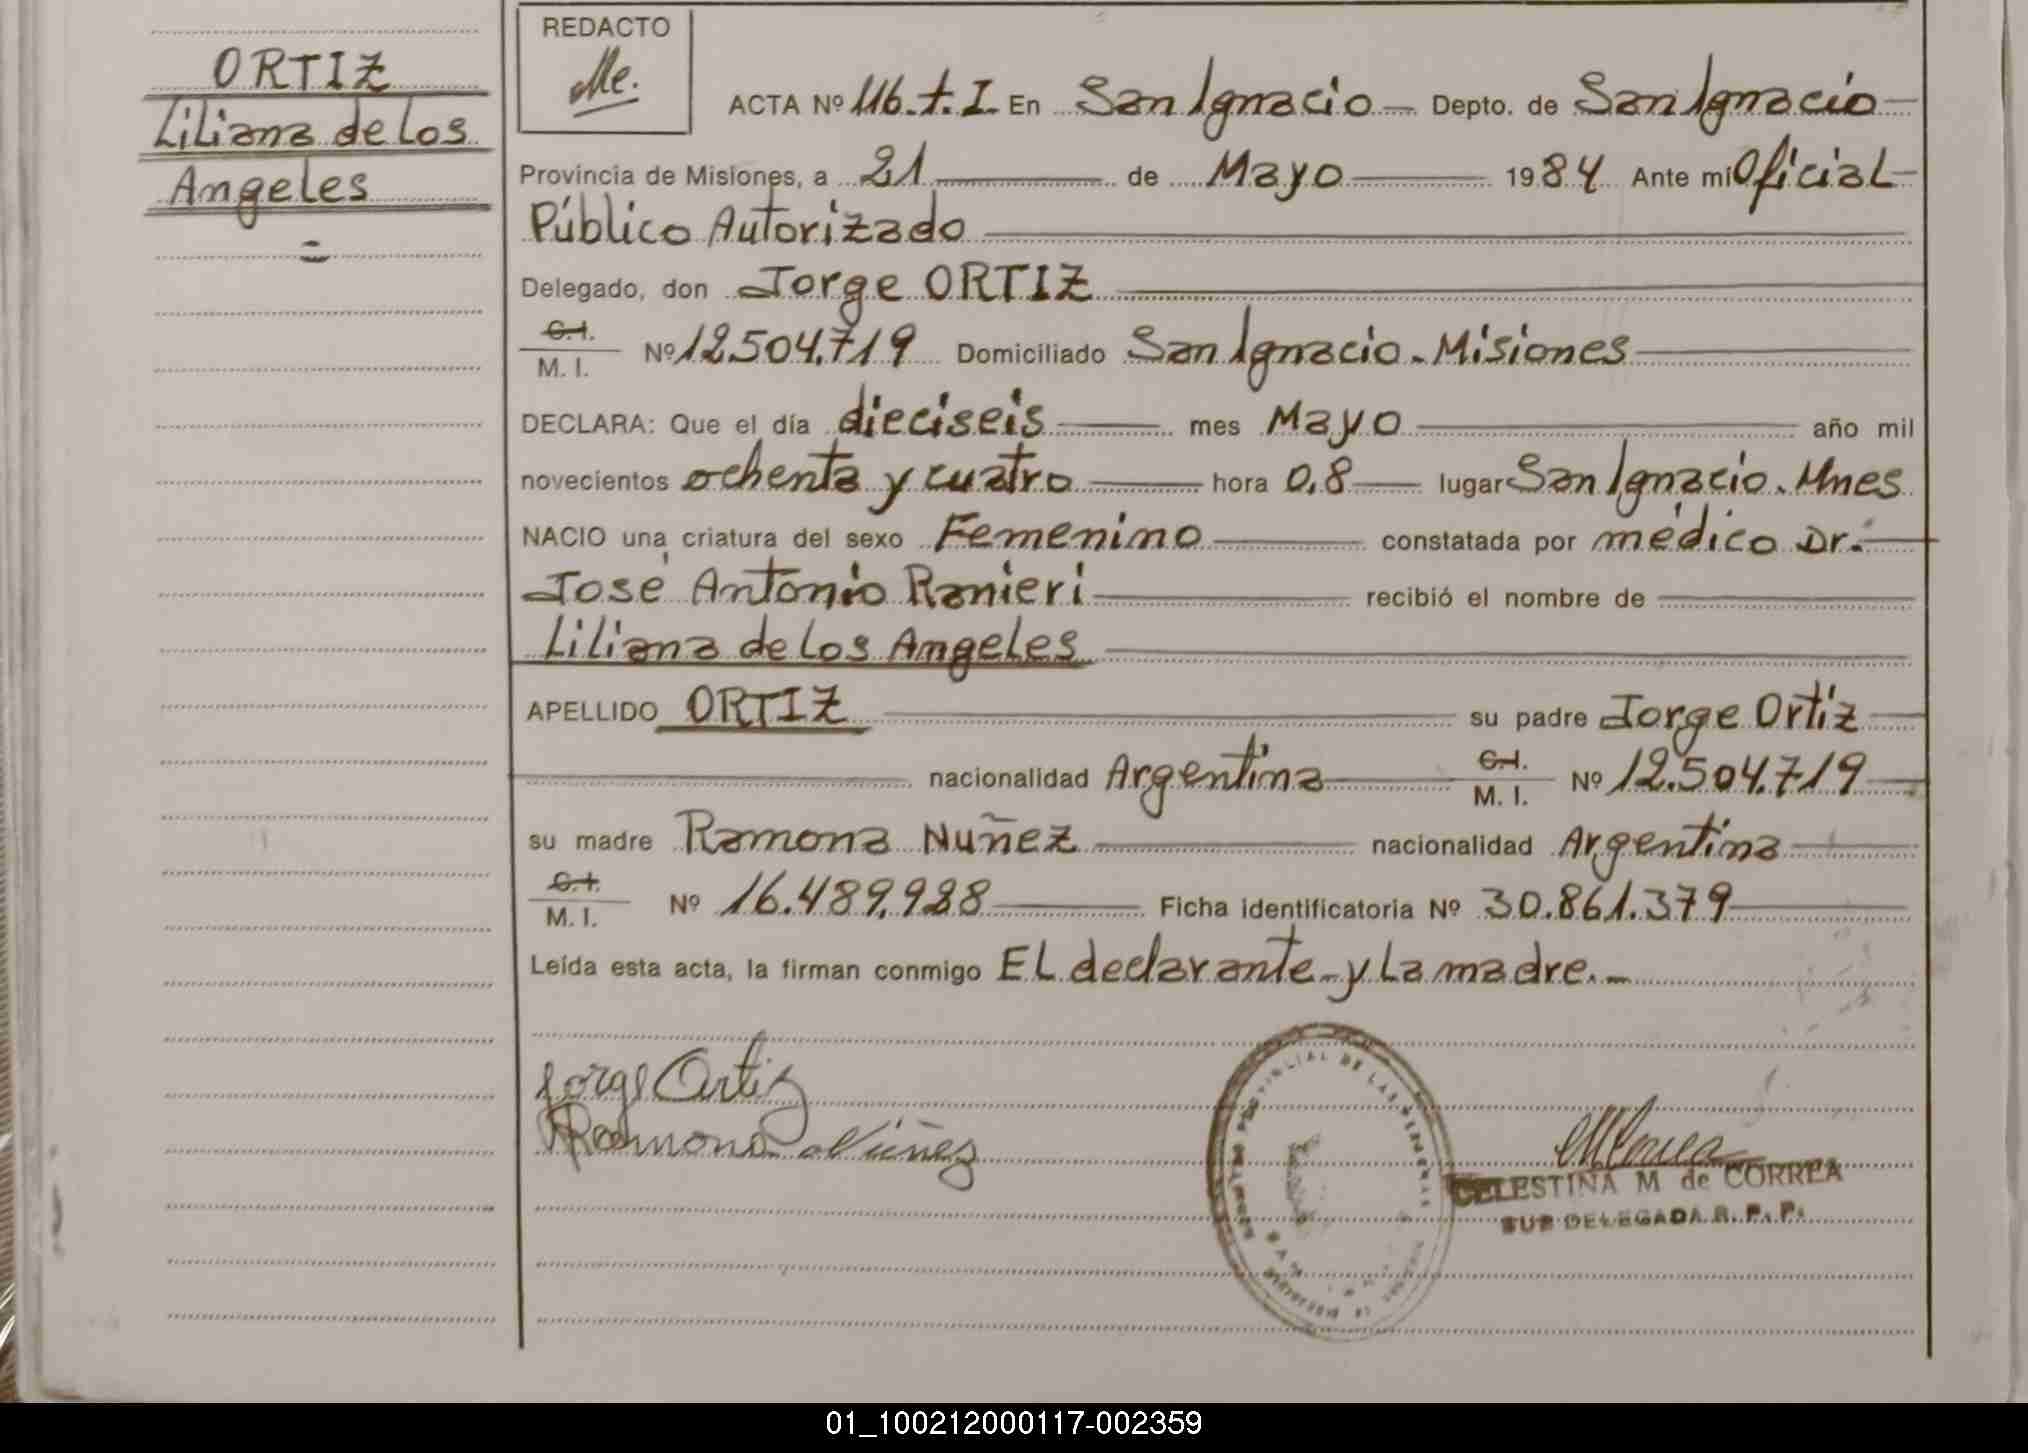 ORTIZ
Liliana de Los
Angeles
REDACTO
Me.
ACTA Nº 116.t.I. En San Ignacio Depto. de San Ignacio
Provincia de Misiones, a 21 de Mayo 1984 Ante mi Oficial
Público Autorizado
Delegado, don Jorge ORTIZ
C.I.
M. I. Nº 12.504.719 Domiciliado San Ignacio. Misiones
DECLARA: Que el día dieciseis mes Mayo año mil
novecientos ochenta y cuatro hora 0,8 lugar San Ignacio. Mnes
NACIO una criatura del sexo Femenino constatada por médico Dr.
José Antonio Ranieri recibió el nombre de
Liliana de Los Angeles
APELLIDO ORTIZ su padre Jorge Ortiz
nacionalidad Argentina C.I. M. I. Nº 12.504.719
su madre Ramona Nuñez nacionalidad Argentina
C.I.
M. I. Nº 16.489.928 Ficha identificatoria Nº 30.861.379
Leída esta acta, la firman conmigo EL declarante y La madre.
Jorge Ortiz
Ramona Núñez
PROVINCIAL DE LAS
CELESTINA M de CORREA
SUB DELEGADA R. P. P.
01_100212000117-002359